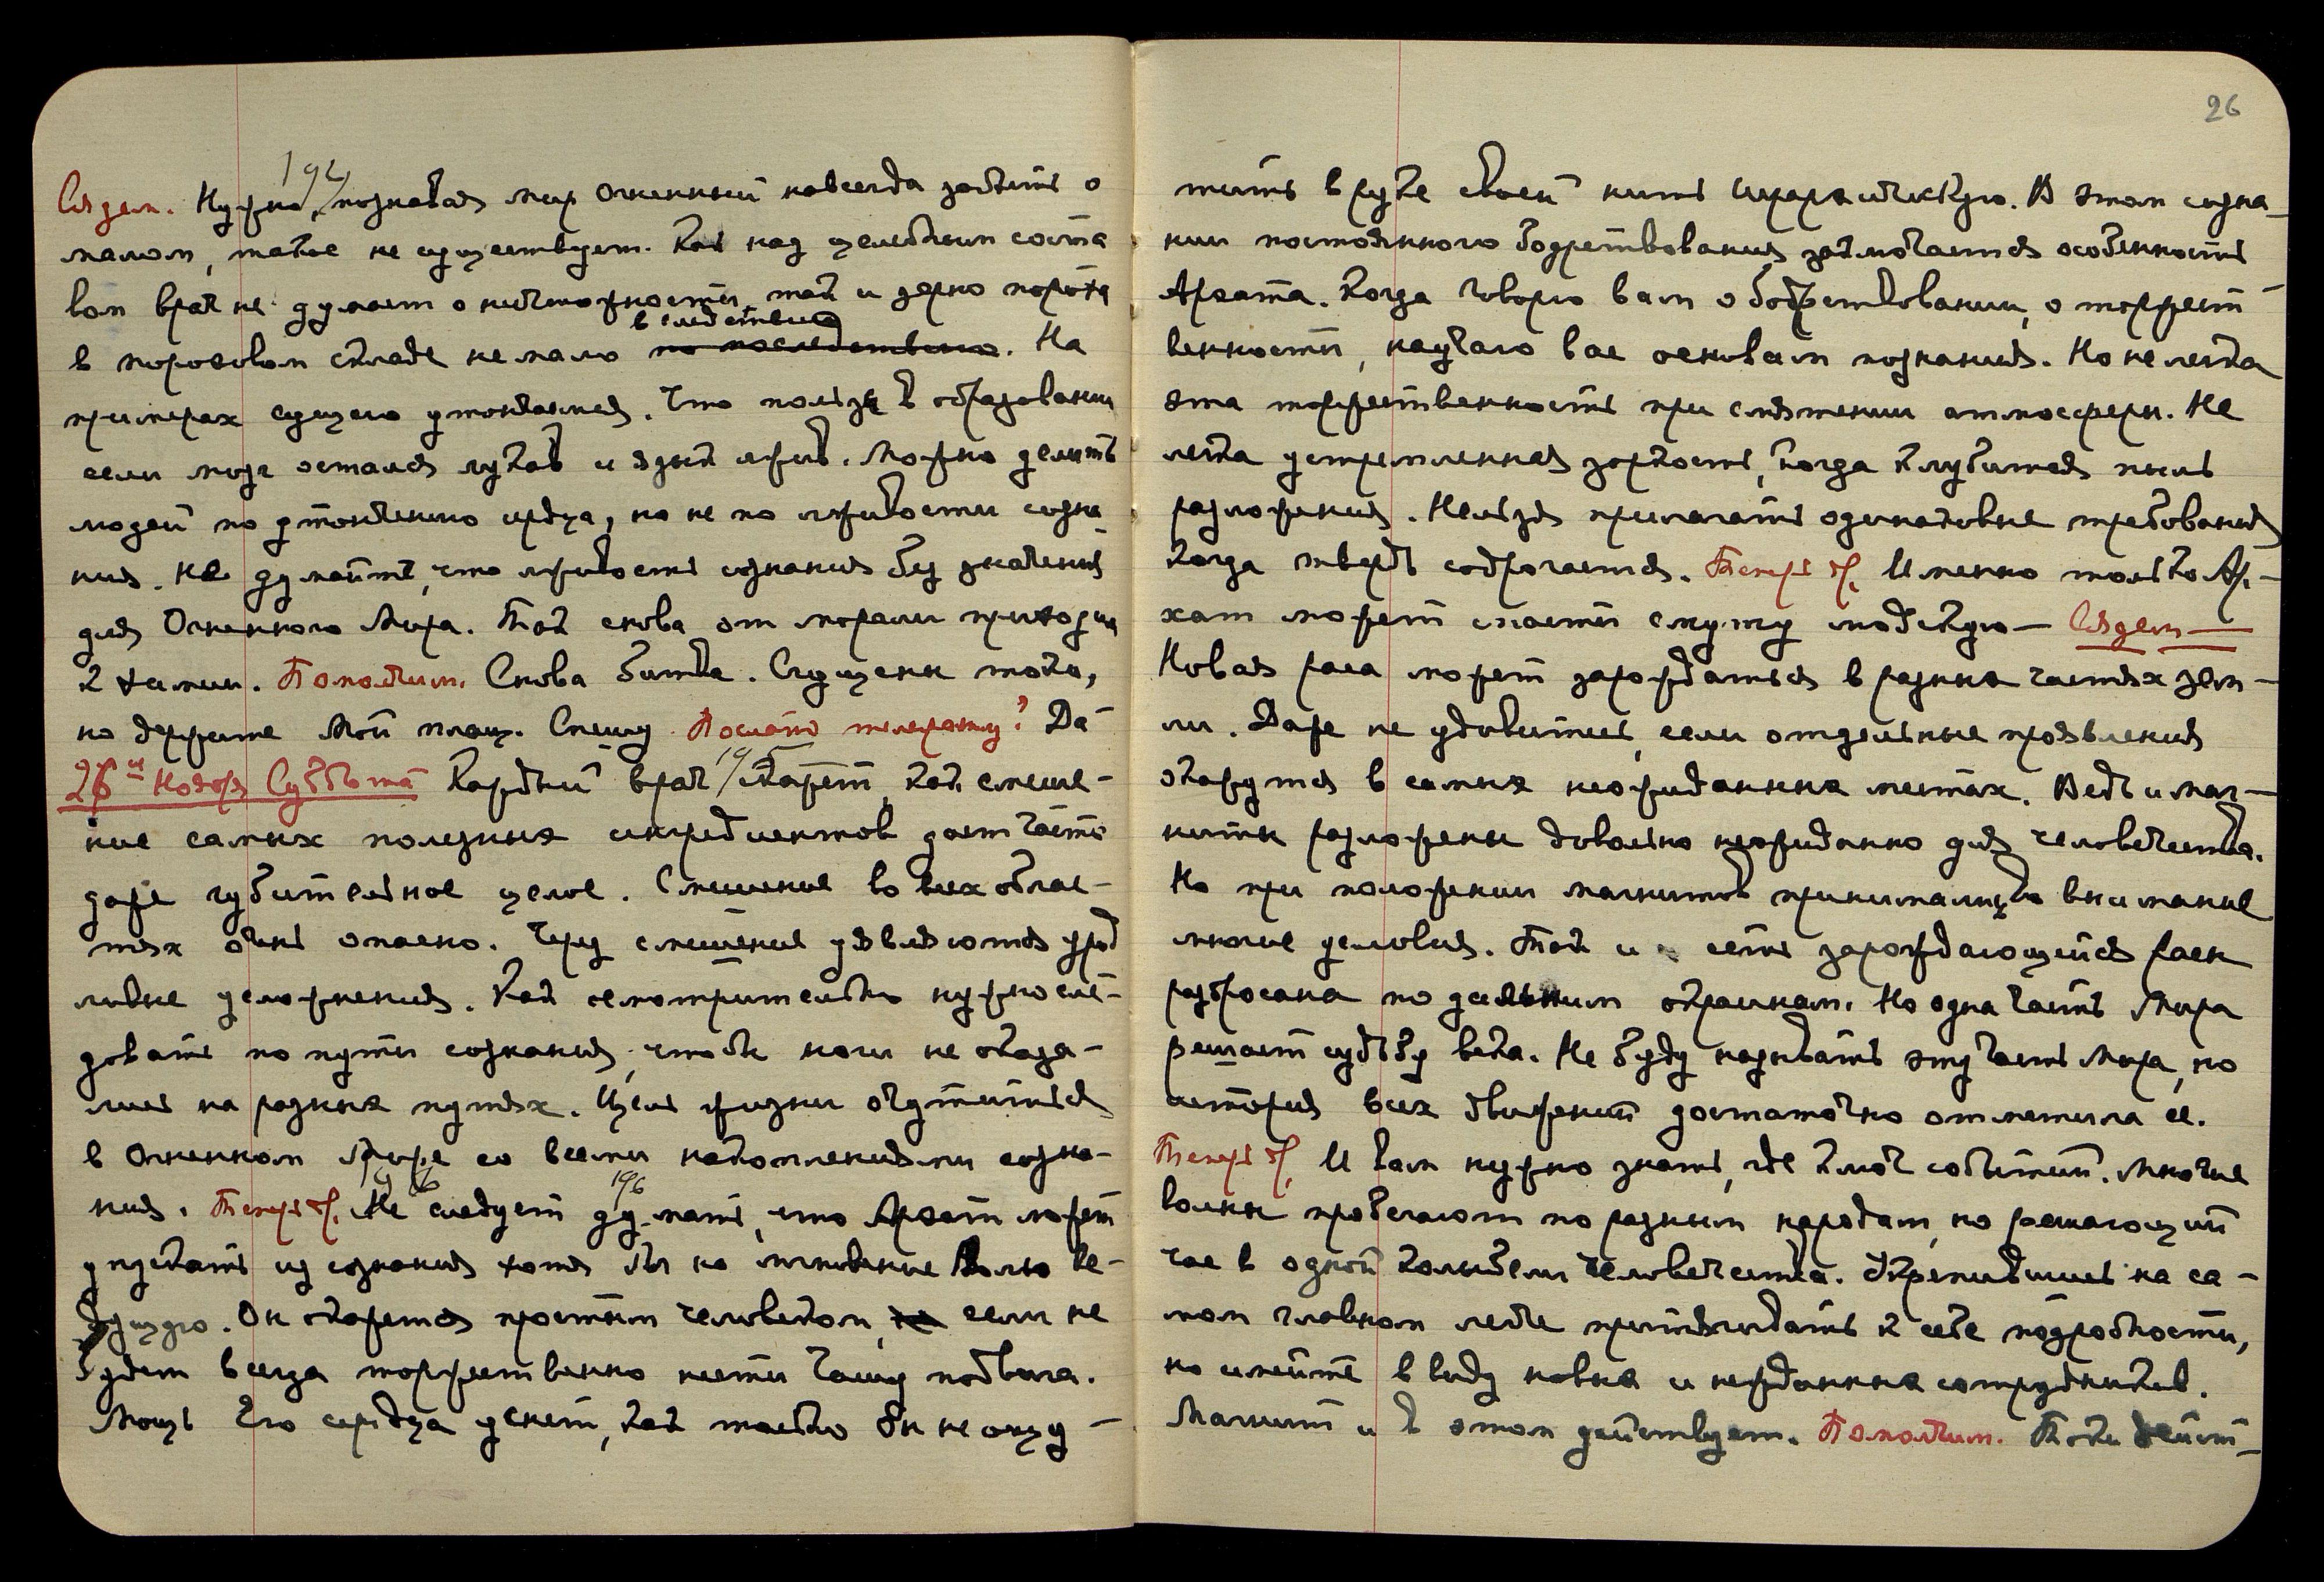 194
Сядем. Нужно, познавая мир Огненный навсегда забыть о
малом, такое не существует. Как над целебным соста
вом врач не думает о ничтожности, так и зерно пороха
в последствиях
в пороховом складе не мало по последствию. На
примерах сущего утончаемся. Что пользы в образовании
если мозг остался лукав и язык лжив. Можно делить
людей по утончению сердца, но не по лживости созна
ния. Не думайте, что лживость сознания без значения
для Огненного Мира. Так снова от морали приходим
к химии. Помолчим. Снова битва. Сгущены токи,
но держите Мой плащ. Спешу. Послать телеграмму? Да
195
26 и Ноября Суббота Каждый врач скажет, как смеше-
ние самых полезных ингредиентов дает часто
даже губительное целое. Смешение во всех облас-
тях очень опасно. Через смешение являются урод
ливые усложнения. Как осмотрительно нужно сле-
довать по пути сознания, чтобы ноги не оказа-
лись на разных путях. Цель жизни очутиться
в Огненном Мире со всеми накоплениями созна-
196
ния. Теперь Я. Не следует думать, что Архат может
упускать из сознания хотя бы на мгновение Волю Ве-
дущую. Он окажется простым человеком, если не
будет всегда торжественно нести Чашу подвига.
Мощь Его сердца уснет, как только Он не ощу-
26
тить в руке своей нить Иерархическую. В этом созна-
нии постоянного бодрствования заключается особенность
Архата. Когда говорю вам о бодрствовании, о торжест-
венности, научаю вас основам познания. Но не легка
эта торжественность при смятении атмосферы. Не
легка устремленная зоркость, когда клубится пыль
разложения. Нельзя прилагать одинаковые требования
когда твердь содрогается. Теперь Я. Именно только Ар-
хат может спасти смуту людскую — Сядем —
Новая раса может зарождаться в разных частях зем-
ли. Даже не удивитесь, если отдельные проявления
окажутся в самых неожиданных местах. Ведь и маг-
ниты разложены довольно неожиданно для человечества.
Но при положении магнитов принимались во внимание
многие условия. Так и сеть зарождающейся расы
разбросана по дальним окраинам. Но одна часть Мира
решает судьбу века. Не буду называть эту часть Мира, но
история всех движений достаточно отметила ее.
Теперь Я. И вам нужно знать, где ключ событий. Многие
волны пробегают по разным народам, но решающий
час в одной колыбели человечества. Укрепившись на са-
мом главном легче притягивать к себе подробности,
но имейте в виду новых и нежданных сотрудников.
Магнит и в этом действует. Помолчим. Токи дейст-